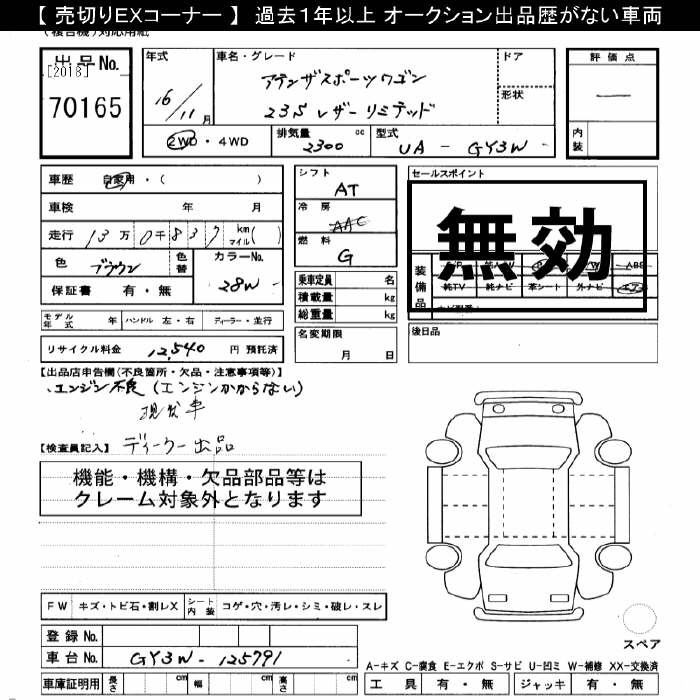 【 売切りEXコーナー 】 過去1年以上 オークション出品歴がない車両
(複合機)対応用紙
出品No.
[2018]
70165
年式
16/11月
車名・グレード
アテンザスポーツワゴン
23S レザーリミテッド
ドア
形状
評価点
―
内装
2WD・4WD
排気量 2300 cc
型式 UA - GY3W
車歴 自家用・( )
車検 年 月
走行 13万0千837 km マイル( )
色 ブラウン 色替 カラーNo. 28W
保証書 有・無
モデル年式 年 ハンドル 左・右 ディーラー・並行
リサイクル料金 12,540 円 預託済
シフト AT
冷房 AAC
燃料 G
乗車定員 名
積載量 kg
総重量 kg
名変期限
月 日
セールスポイント
無効
装備品
ABS
純TV 純ナビ 革シート 外ナビ エアB
後日品
【出品店申告欄(不良箇所・欠品・注意事項等)】
エンジン不良(エンジンかからない)
現状車
【検査員記入】 ディーラー出品
機能・機構・欠品部品等は
クレーム対象外となります
FW キズ・トビ石・割レX シート内装 コゲ・穴・汚レ・シミ・破レ・スレ
登録No.
車台No. GY3W-125791
車庫証明用 長さ cm 幅 cm 高さ cm
スペア
A-キズ C-腐食 E-エクボ S-サビ U-凹ミ W-補修 XX-交換済
工具 有・無 ジャッキ 有・無